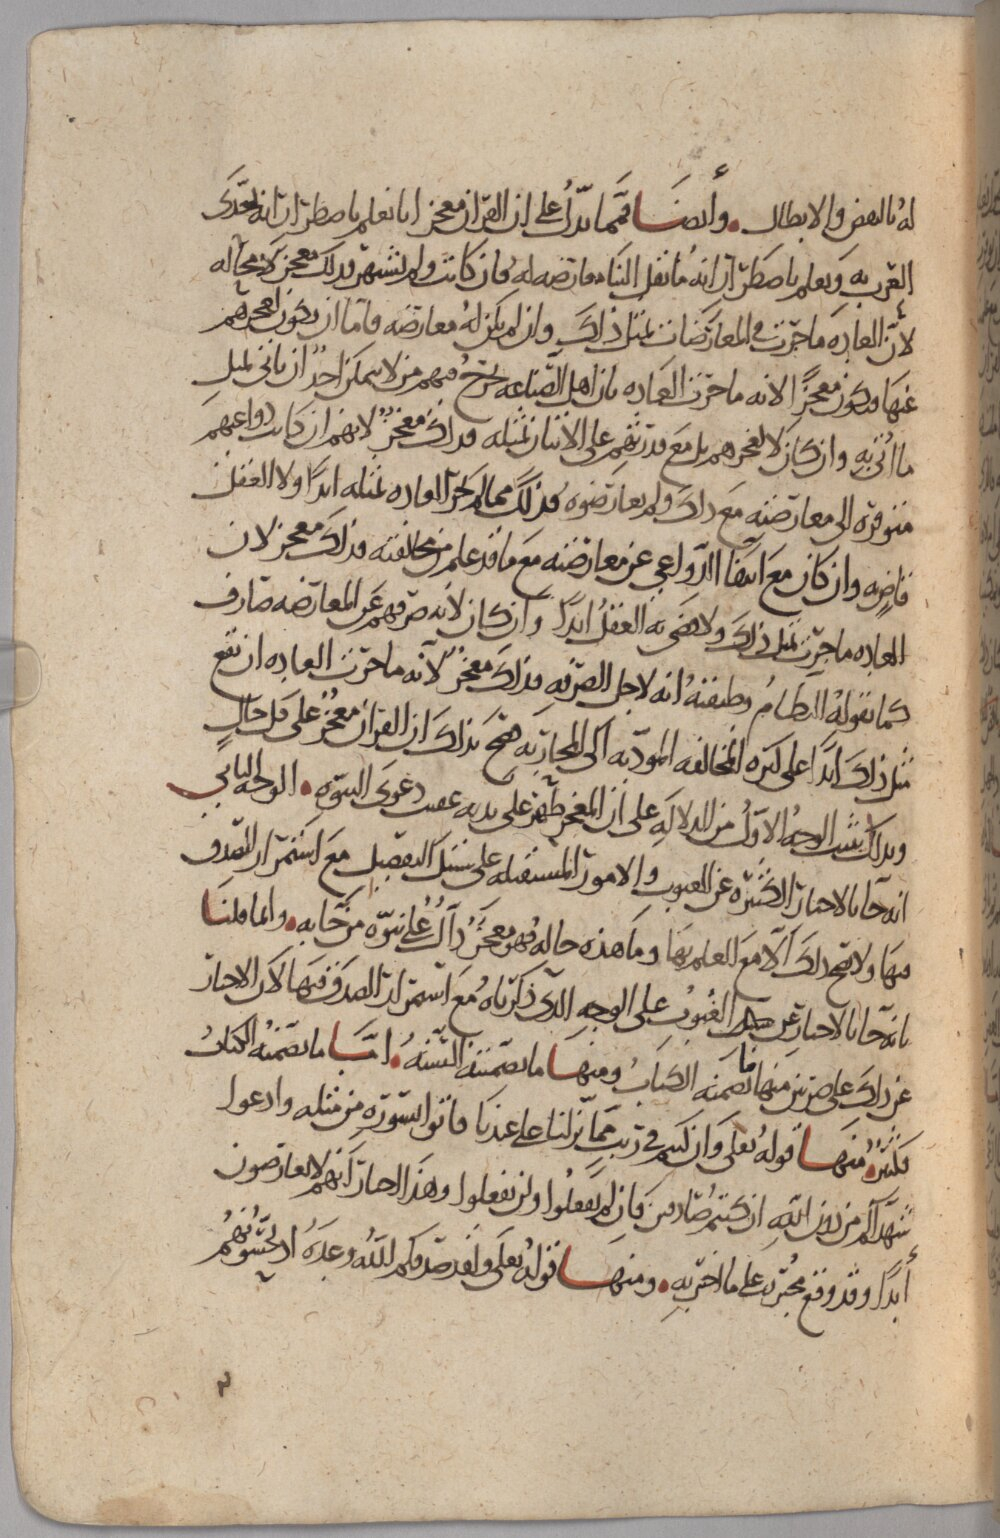 له بالنقض والابطال . وأيضا فمما يدل على ان القران معجز انا نعلم باضطرار انه تحدى
العرب به ويعلم باضطرار انه ما نقل الينا معارضه له فان كانت ولم تشتهر فذلك معجز لا محاله
لأن العاده ما جرت في المعارضات بمثل ذلك وان لم يكن له معارضه فاما ان يكون لعجزهم
عنها فيكون معجزًا لانه ما جرت العاده بان اهل الصناعه يخرج منهم من لا يمكن احد ان ياتي بمثل
ما أتى به وان كان لا لعجزهم بل مع قدرتهم على الاتيان بمثله فذلك معجز لانهم ان كانت دواعيهم
متوفره الى معارضته مع ذلك ولم يعارضوه فذلك مما لم تجر العاده بمثله ابدًا ولا العقل
قاض به وان كان مع انتفا الدواعي عن معارضته مع ما قد علم من مخالفته فذلك معجز لان
العاده ما جرت بمثل ذلك ولا يقضى به العقل ابدًا وان كان لأنه صرفهم عن المعارضه صارف
كما يقوله النظام وطبقته انه لاجل الصرفه فذلك معجز لأنه ما جرت العاده ان يقع
مثل ذلك ابدًا على كثره المخالفه المؤديه الى المحاربه فصح بذلك ان القران معجز على كل حال
وبذلك يثبت الوجه الاول من الدلاله على ان المعجز ظهر على يديه عقيب دعوى النبوه . الوجه الثاني
انه جا بالاخبار الكثيره عن الغيوب والامور المستقبله على سبيل التفصيل مع استمرار الصدق
فيها ولا يصح ذلك الا مع العلم بها وما هذه حاله فهو معجز دال على نبوه من جا به . وانما قلنا
بانه جا بالاخبار عن الغيوب على الوجه الذي ذكرناه مع استمرار الصدق فيها لان الاخبار
عن ذلك على ضربين منها ما تضمنه الكتاب ومنها ما تضمنته السنه . اما ما تضمنه الكتاب
فكثير منها قوله تعالى وان كنتم في ريب مما نزلنا على عبدنا فاتوا بسورة من مثله وادعوا
شهداكم من دون الله ان كنتم صادقين فان لم تفعلوا ولن تفعلوا وهذا اخبار انهم لا يعارضون
أبدًا وقد وقع مخبره على ما اخبر به . ومنها قوله تعالى ولقد صدقكم الله وعده اذ تحسونهم